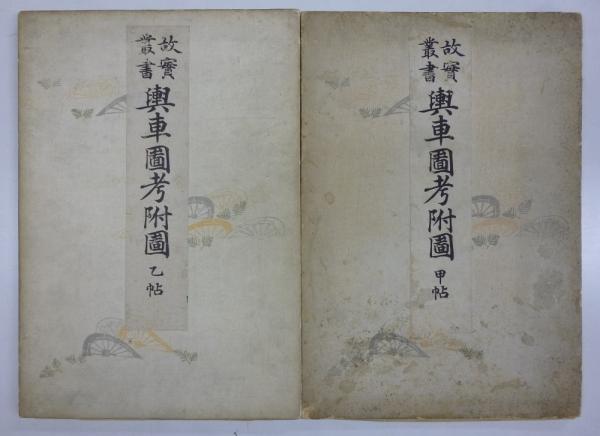 故實
叢書
輿車圖考附圖
甲帖
故實
叢書
輿車圖考附圖
乙帖